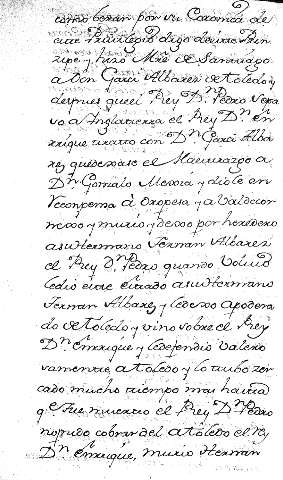 como beran por su Coronica de
este Privilegio digo de este Prin
zipe y hizo Mre. de Santiago
a Don Garci Albarez de Toledo y
despues que el Rey Dn. Pedro se pa
so a Ynglatierra el Rey Dn. En
rrique trato con Dn. Garci Alba
rez que dexase el Maestrazgo a
Dn. Gonzalo Mexia y diole en
Reconpensa a Oropesa y a Valdecor
neja y murio y dexo por heredero
a su Hermano Fernan Albarez
el Rey Dn. Pedro quando volvio
le dio este estado a su Hermano
Fernan Albarez y le dexo apodera
do de Toledo y vino sobre el Rey
Dn. Enrrique y le defendio valero
samente a Toledo y lo tubo zer
cado mucho tiempo mas hasta
q. fue muerto el Rey Dn. Pedro
no pudo cobrar del a Toledo el Rey
Dn. Enrrique, murio Hernan